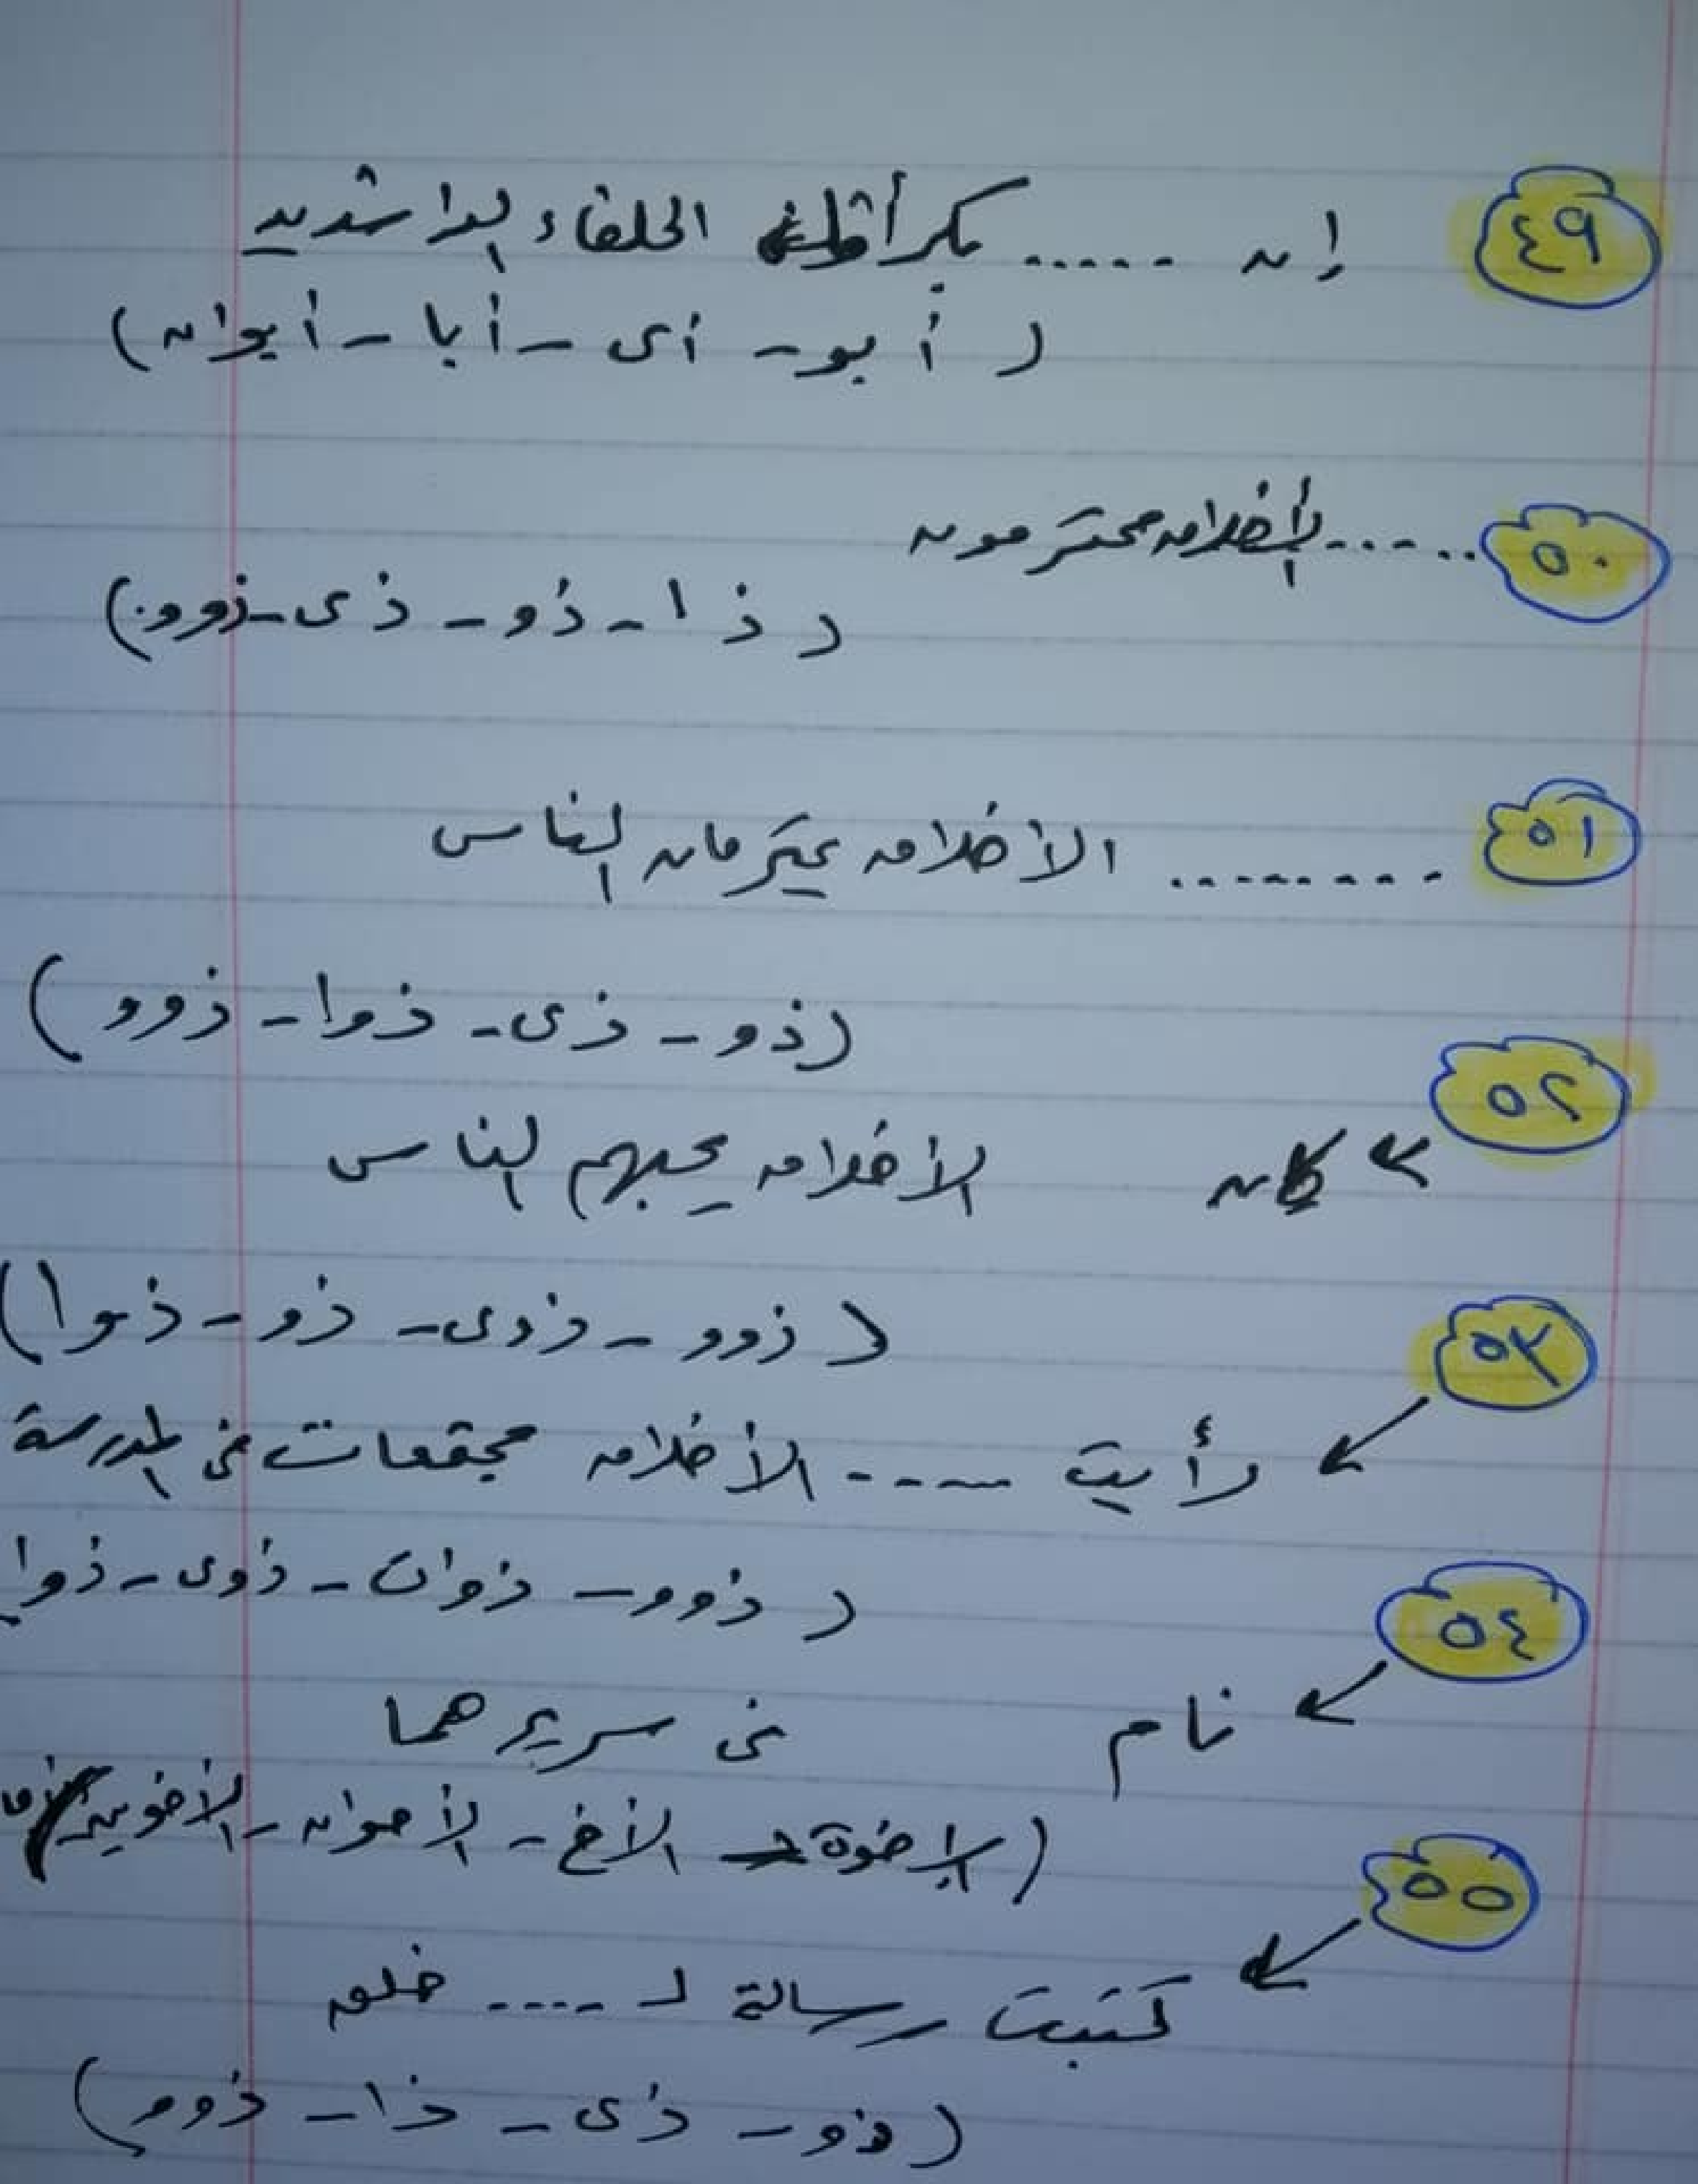 ٤٩ إن ...... بكر أول الخلفاء الراشدين
( أبو - أبى - أبا - أبوان )
٥٠ ...... الأخلاق محترمون
( ذا - ذو - ذى - ذوو )
٥١ ......... الأخلاق يحترمان الناس
( ذو - ذى - ذوا - ذوو )
٥٢
كان الأخلاق يحبهم الناس
( ذوو - ذوى - ذو - ذوا )
٥٣
رأيت ---- الأخلاق مجتمعات فى المدرسة
( ذوو - ذوات - ذوى - ذوا
٥٤
نام فى سريرهما
( الإخوة - الأخ - الأخوان - الأخوين )
٥٥
كتبت رسالة لـ ---- خلق
( ذو - ذى - ذا - ذوو )